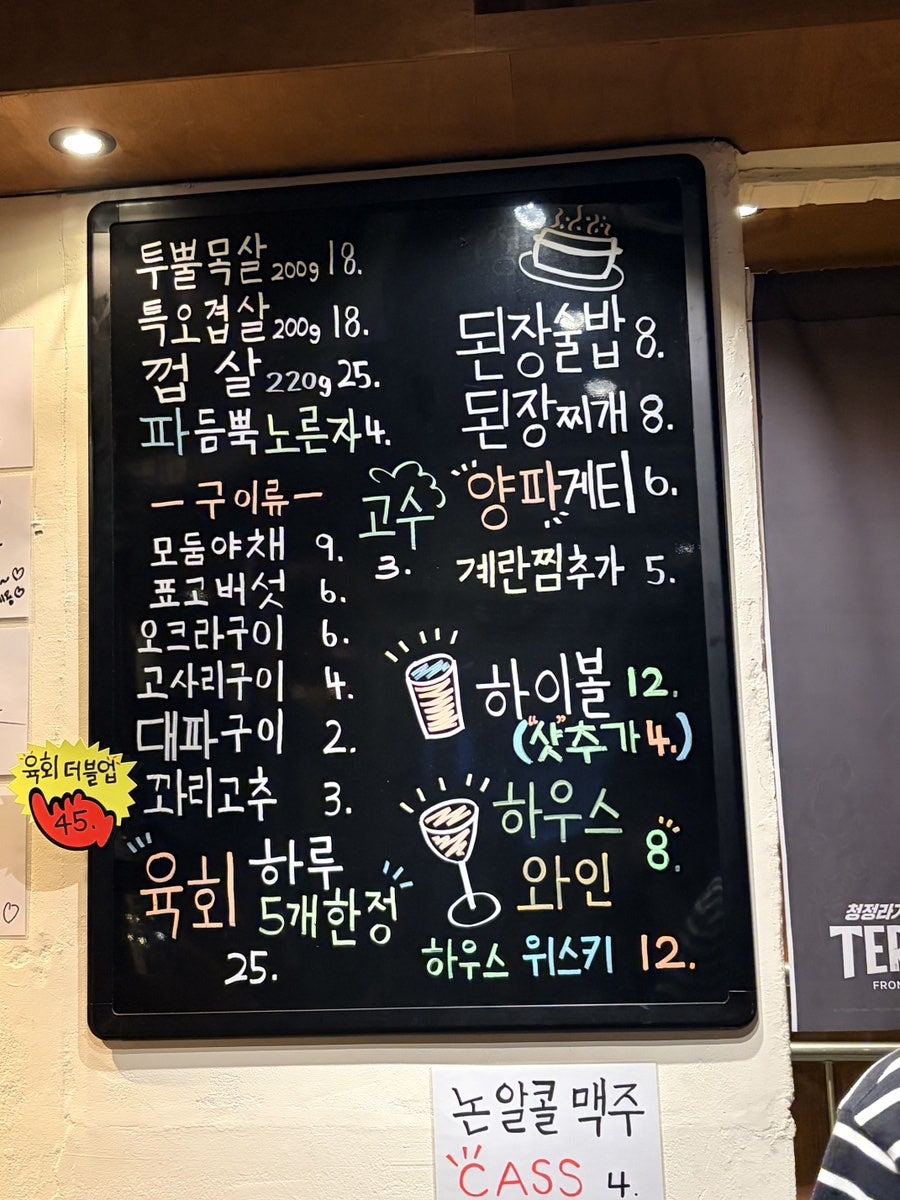 투뿔목살 200g 18.
특오겹살 200g 18.
껍살 220g 25.
파듬뿍노른자 4.
- 구이류 -
모둠야채 9.
표고버섯 6.
오크라구이 6.
고사리구이 4.
대파구이 2.
꽈리고추 3.
육회 하루
5개한정
25.
육회 더블업
45.
고수
3.
된장술밥 8.
된장찌개 8.
양파게티 6.
계란찜추가 5.
하이볼 12.
("샷"추가 4.)
하우스
와인 8.
하우스 위스키 12.
논알콜 맥주
CASS 4.
청정라
TER
FRO